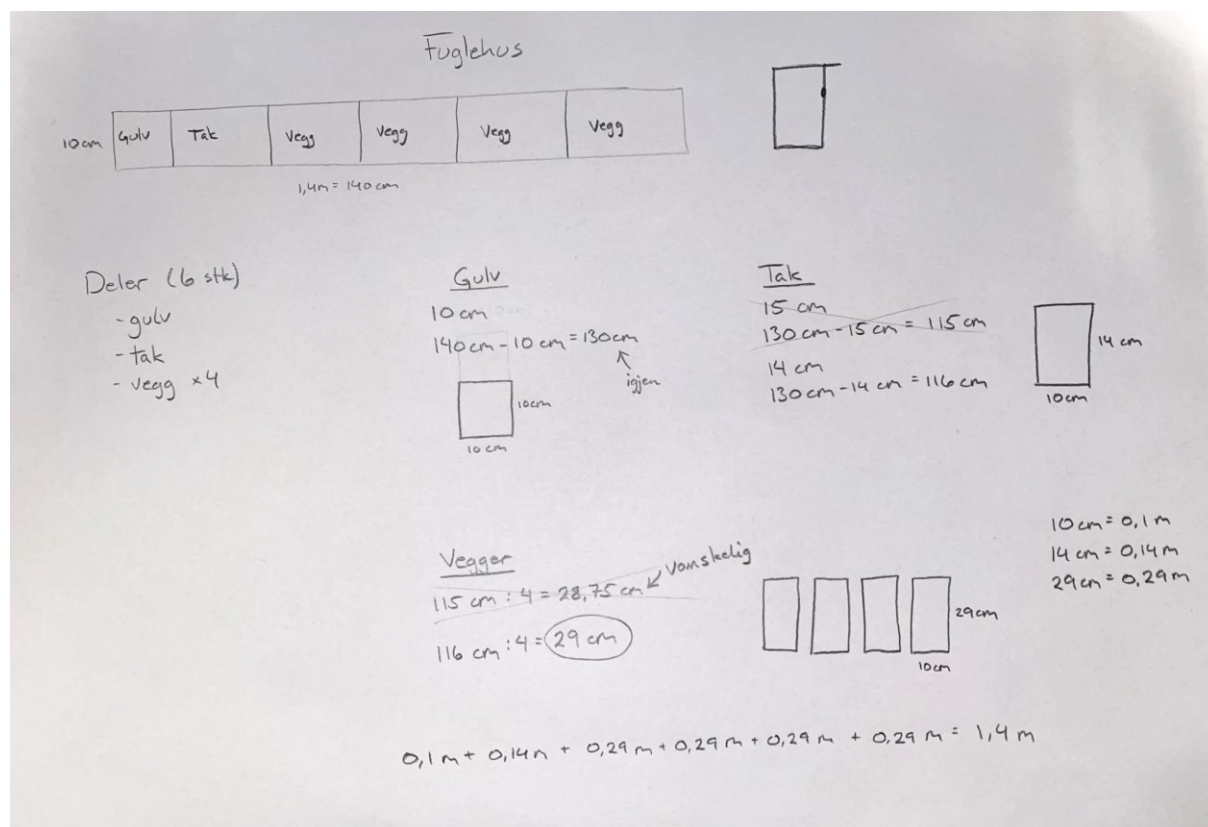 Fuglehus
10 cm Gulv Tak Vegg Vegg Vegg Vegg
1,4m = 140 cm
Deler (6 stk)
- gulv
- tak
- vegg x4
Gulv
10 cm
140 cm - 10 cm = 130 cm
igjen
10 cm
10 cm
Tak
15 cm
130 cm - 15 cm = 115 cm
14 cm
130 cm - 14 cm = 116 cm
14 cm
10 cm
Vegger
115 cm : 4 = 28,75 cm
vanskelig
116 cm : 4 = 29 cm
29 cm
10 cm
10 cm = 0,1 m
14 cm = 0,14 m
29 cm = 0,29 m
0,1 m + 0,14 m + 0,29 m + 0,29 m + 0,29 m + 0,29 m = 1,4 m